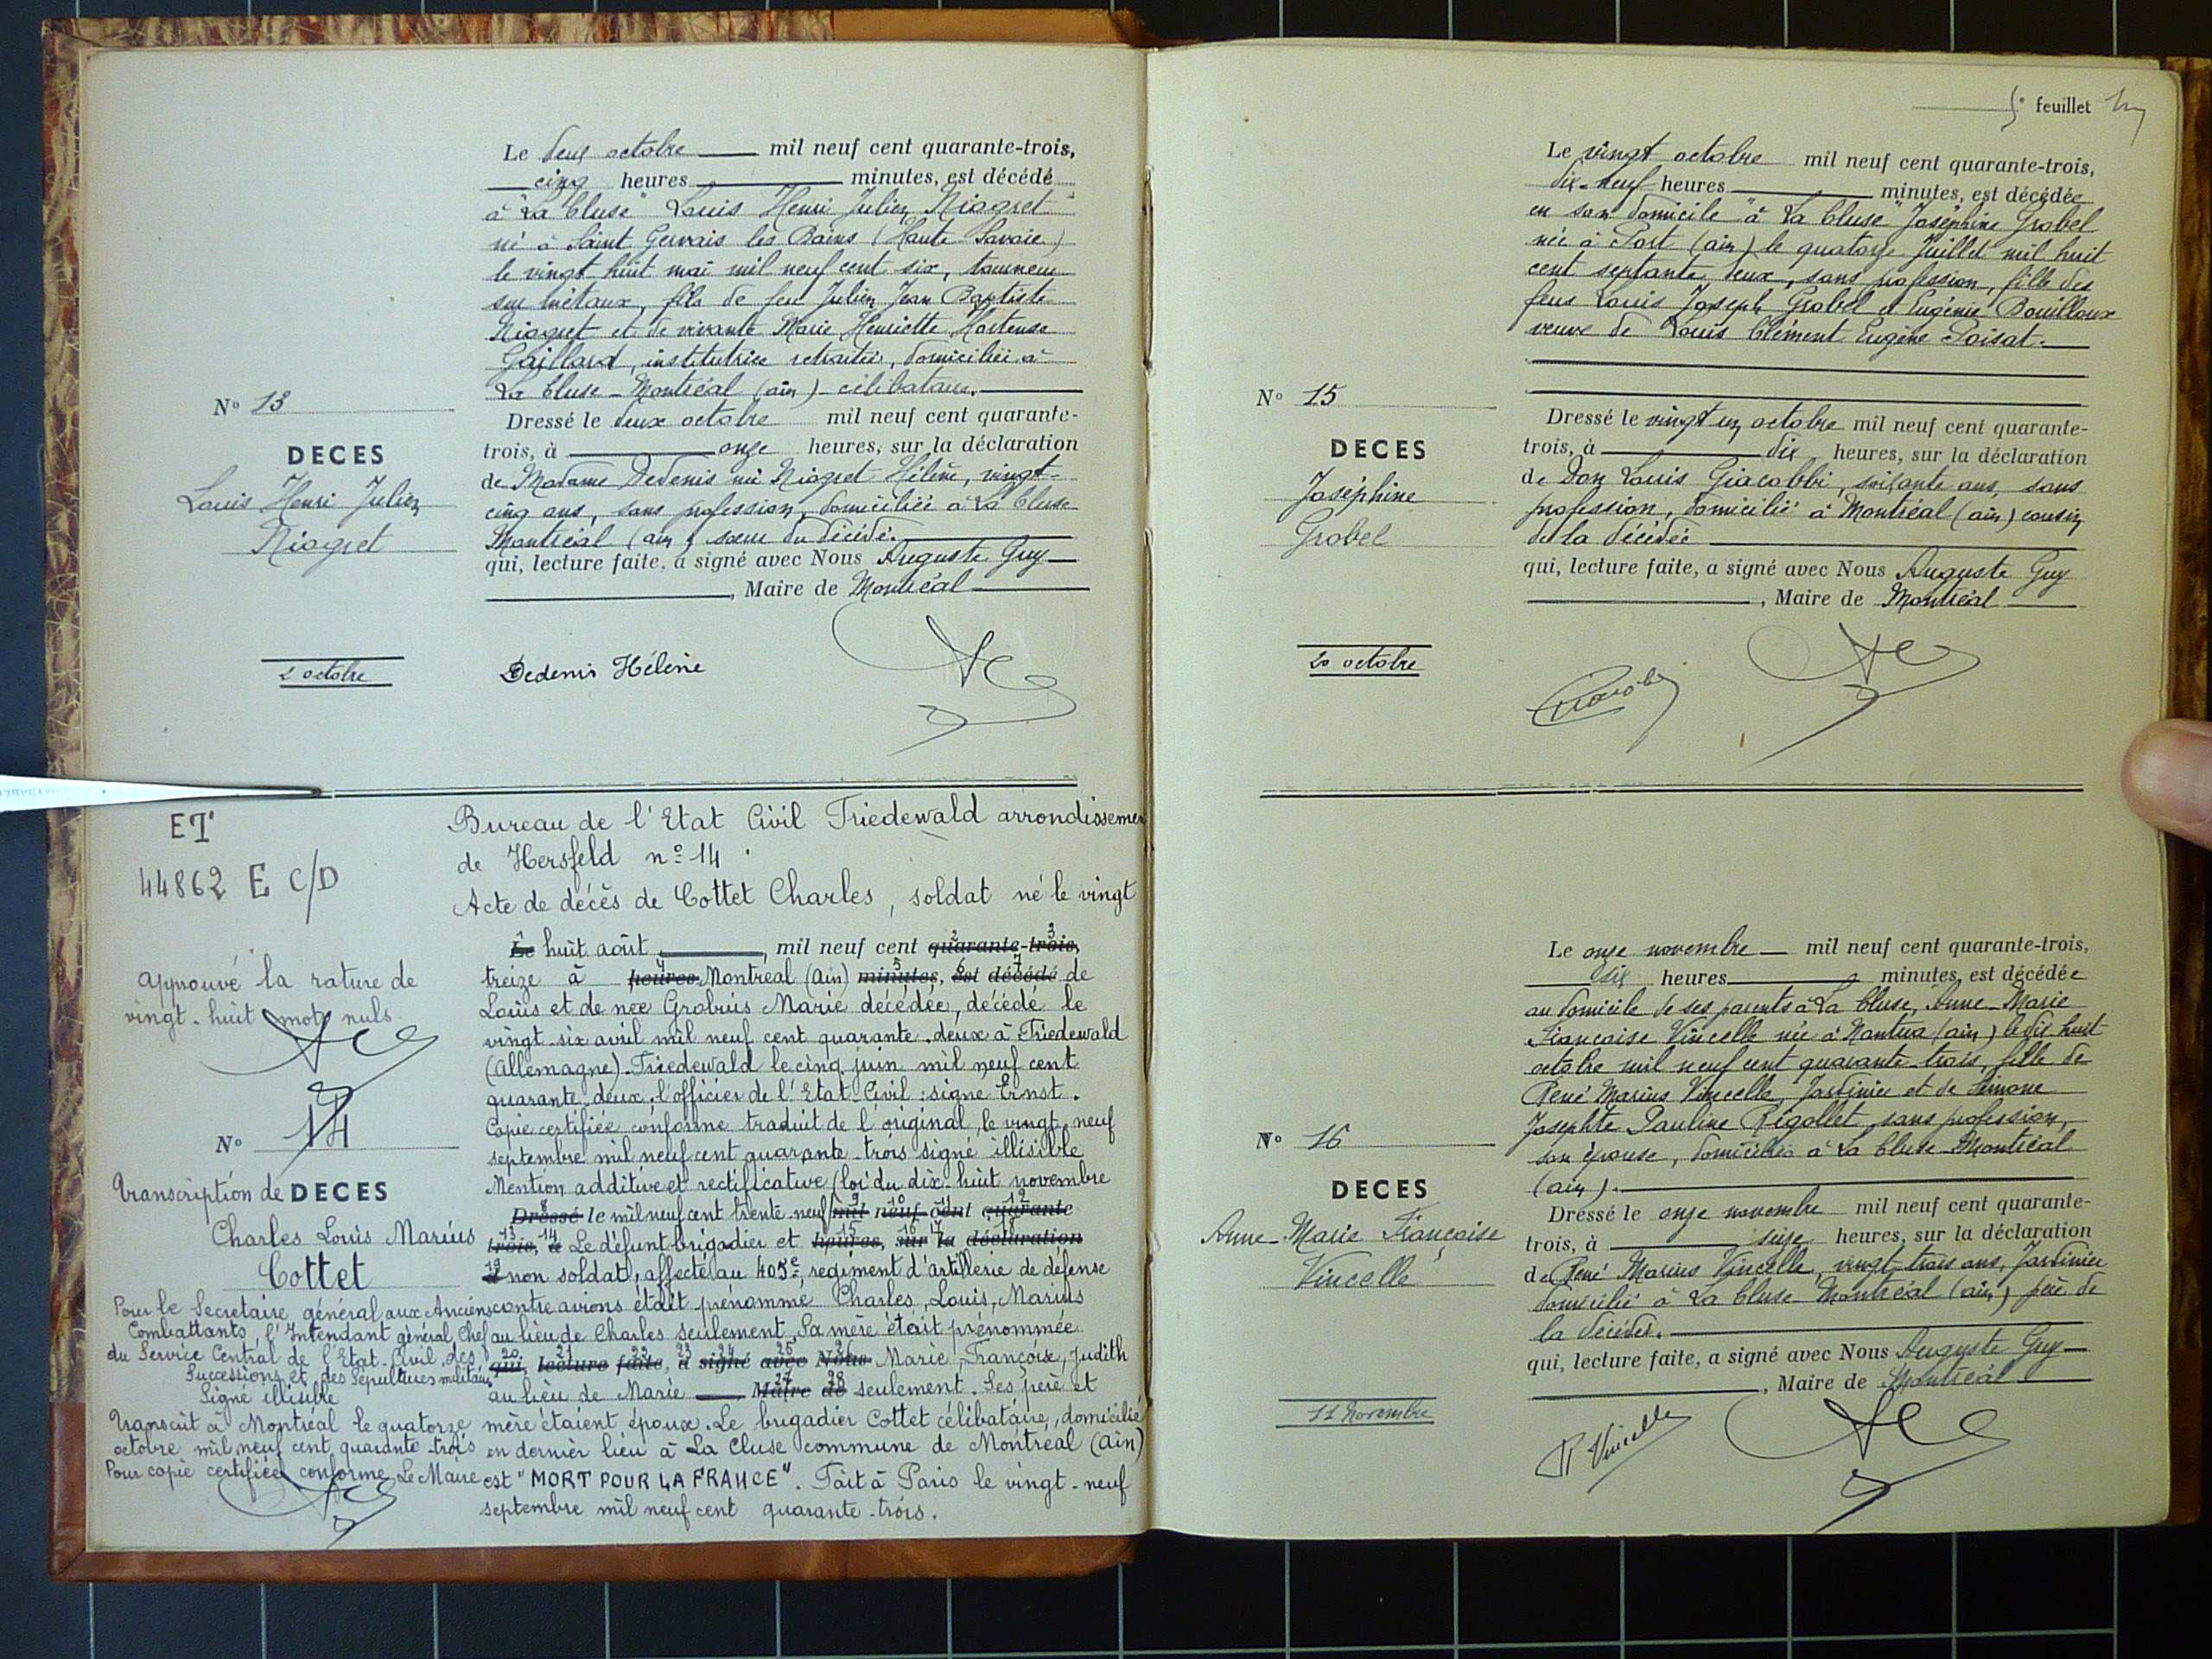 Le deux octobre mil neuf cent quarante-trois,
cinq heures minutes, est décédé
à "La Cluse" Louis Henri Julien Niogret
né à Saint Gervais les Bains (Haute Savoie)
le vingt huit mai mil neuf cent six, tourneur
sur métaux, fils de feu Julien Jean Baptiste
Niogret et de vivante Marie Henriette Hortense
Gaillard, institutrice retraitée, domiciliée à
La Cluse - Montréal (ain) - célibataire.
N° 13
DECES
Louis Henri Julien
Niogret
2 octobre
Dressé le deux octobre mil neuf cent quarante-
trois, à onze heures, sur la déclaration
de Madame Dedenis né Niogret Hélène, vingt-
cinq ans, sans profession, domiciliée à La Cluse
Montréal (ain) sœur du décédé.
qui, lecture faite, a signé avec Nous Auguste Guy
, Maire de Montréal
Dedenis Hélène
ET
44862 E C/D
approuvé la rature de
vingt-huit mots nuls
N° 14
Transcription de DECES
Charles Louis Marius
Cottet
Pour le Secrétaire général aux Anciens
Combattants, l'Intendant général, Chef
du Service Central de l'Etat-Civil, des
Successions et des Sépultures militaires
Signé illisible
Transcrit à Montréal le quatorze
octobre mil neuf cent quarante-trois
Pour copie certifiée conforme, Le Maire
Bureau de l'Etat Civil Friedewald arrondissemen
de Hersfeld n° 14
Acte de décès de Cottet Charles, soldat né le vingt
Le huit août, mil neuf cent quarante-trois,
treize à heures Montreal (Ain) minutes, est décédé de
Louis et de nee Grobrus Marie décédée, décédé le
vingt-six avril mil neuf cent quarante-deux à Friedewald
(Allemagne). Friedewald le cinq juin mil neuf cent
quarante-deux. l'officier de l'Etat-Civil : signé Ernst.
Copie certifiée conforme traduit de l'original, le vingt-neuf
septembre mil neuf cent quarante-trois signé illisible
Mention additive et rectificative (loi du dix-huit novembre
Dressé le mil neuf cent trente-neuf) mil neuf cent quarante
trois, à Le défunt brigadier et heures, sur la déclaration
d non soldat, affecté au 405e, regiment d'artillerie de défense
contre avions était prénommé Charles, Louis, Marius
au lieu de Charles seulement. Sa mère était prénommée
qui, lecture faite, a signé avec Nous Marie, Françoise, Judith
au lieu de Marie Maire de seulement. Ses père et
mère étaient époux. Le brigadier Cottet célibataire, domicilié
en dernier lieu à La Cluse commune de Montréal (Ain)
est "MORT POUR LA FRANCE". Fait à Paris le vingt-neuf
septembre mil neuf cent quarante-trois.
5e feuillet
Le vingt octobre mil neuf cent quarante-trois,
dix-neuf heures minutes, est décédée
en son domicile "à La Cluse" Joséphine Grobel
née à Port (ain) le quatorze Juillet mil huit
cent septante deux, sans profession, fille des
feus Louis Joseph Grobel et Eugénie Bouilloux
veuve de Louis Clément Eugène Poisat.
N° 15
DECES
Joséphine
Grobel
20 octobre
Dressé le vingt un octobre mil neuf cent quarante-
trois, à dix heures, sur la déclaration
de Don Louis Giacobbi, soixante ans, sans
profession, domicilié à Montréal (ain) cousin
de la décédée
qui, lecture faite, a signé avec Nous Auguste Guy
, Maire de Montréal
Le onze novembre mil neuf cent quarante-trois,
heures minutes, est décédée
au domicile de ses parents à La Cluse, Anne-Marie
Françoise Vincelle née à Nantua (ain) le dix huit
octobre mil neuf cent quarante-trois, fille de
René Marius Vincelle, Jardinier et de Simone
Josephte Pauline Rigollet, sans profession,
son épouse, domiciliés à La Cluse-Montréal
(ain).
N° 16
DECES
Anne-Marie Françoise
Vincelle
11 Novembre
Dressé le onze novembre mil neuf cent quarante-
trois, à seize heures, sur la déclaration
de René Marius Vincelle, vingt-trois ans, Jardinier
domicilié à La Cluse Montréal (ain) père de
la décédée.
qui, lecture faite, a signé avec Nous Auguste Guy
, Maire de Montréal
R Vincelle